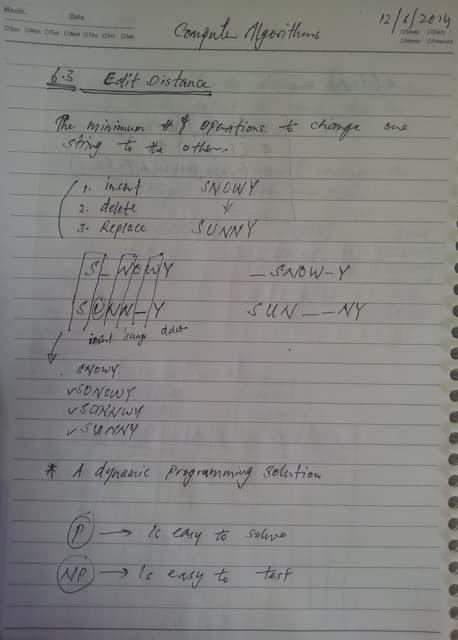 Month. Date. 12/6/2014
□Sun □Mon □Tue □Wed □Thu □Fri □Sat
Computer Algorithms
6.3 Edit Distance
The minimum # of operations to change one
string to the other.
1. insert SNOWY
2. delete ↓
3. Replace SUNNY
S_NOWY _SNOW-Y
SUNN_Y SUN__NY
insert change delete
SNOWY
✓SUNOWY
✓SUNNWY
✓SUNNY
* A dynamic programming solution
P → Is easy to solve
NP → Is easy to test